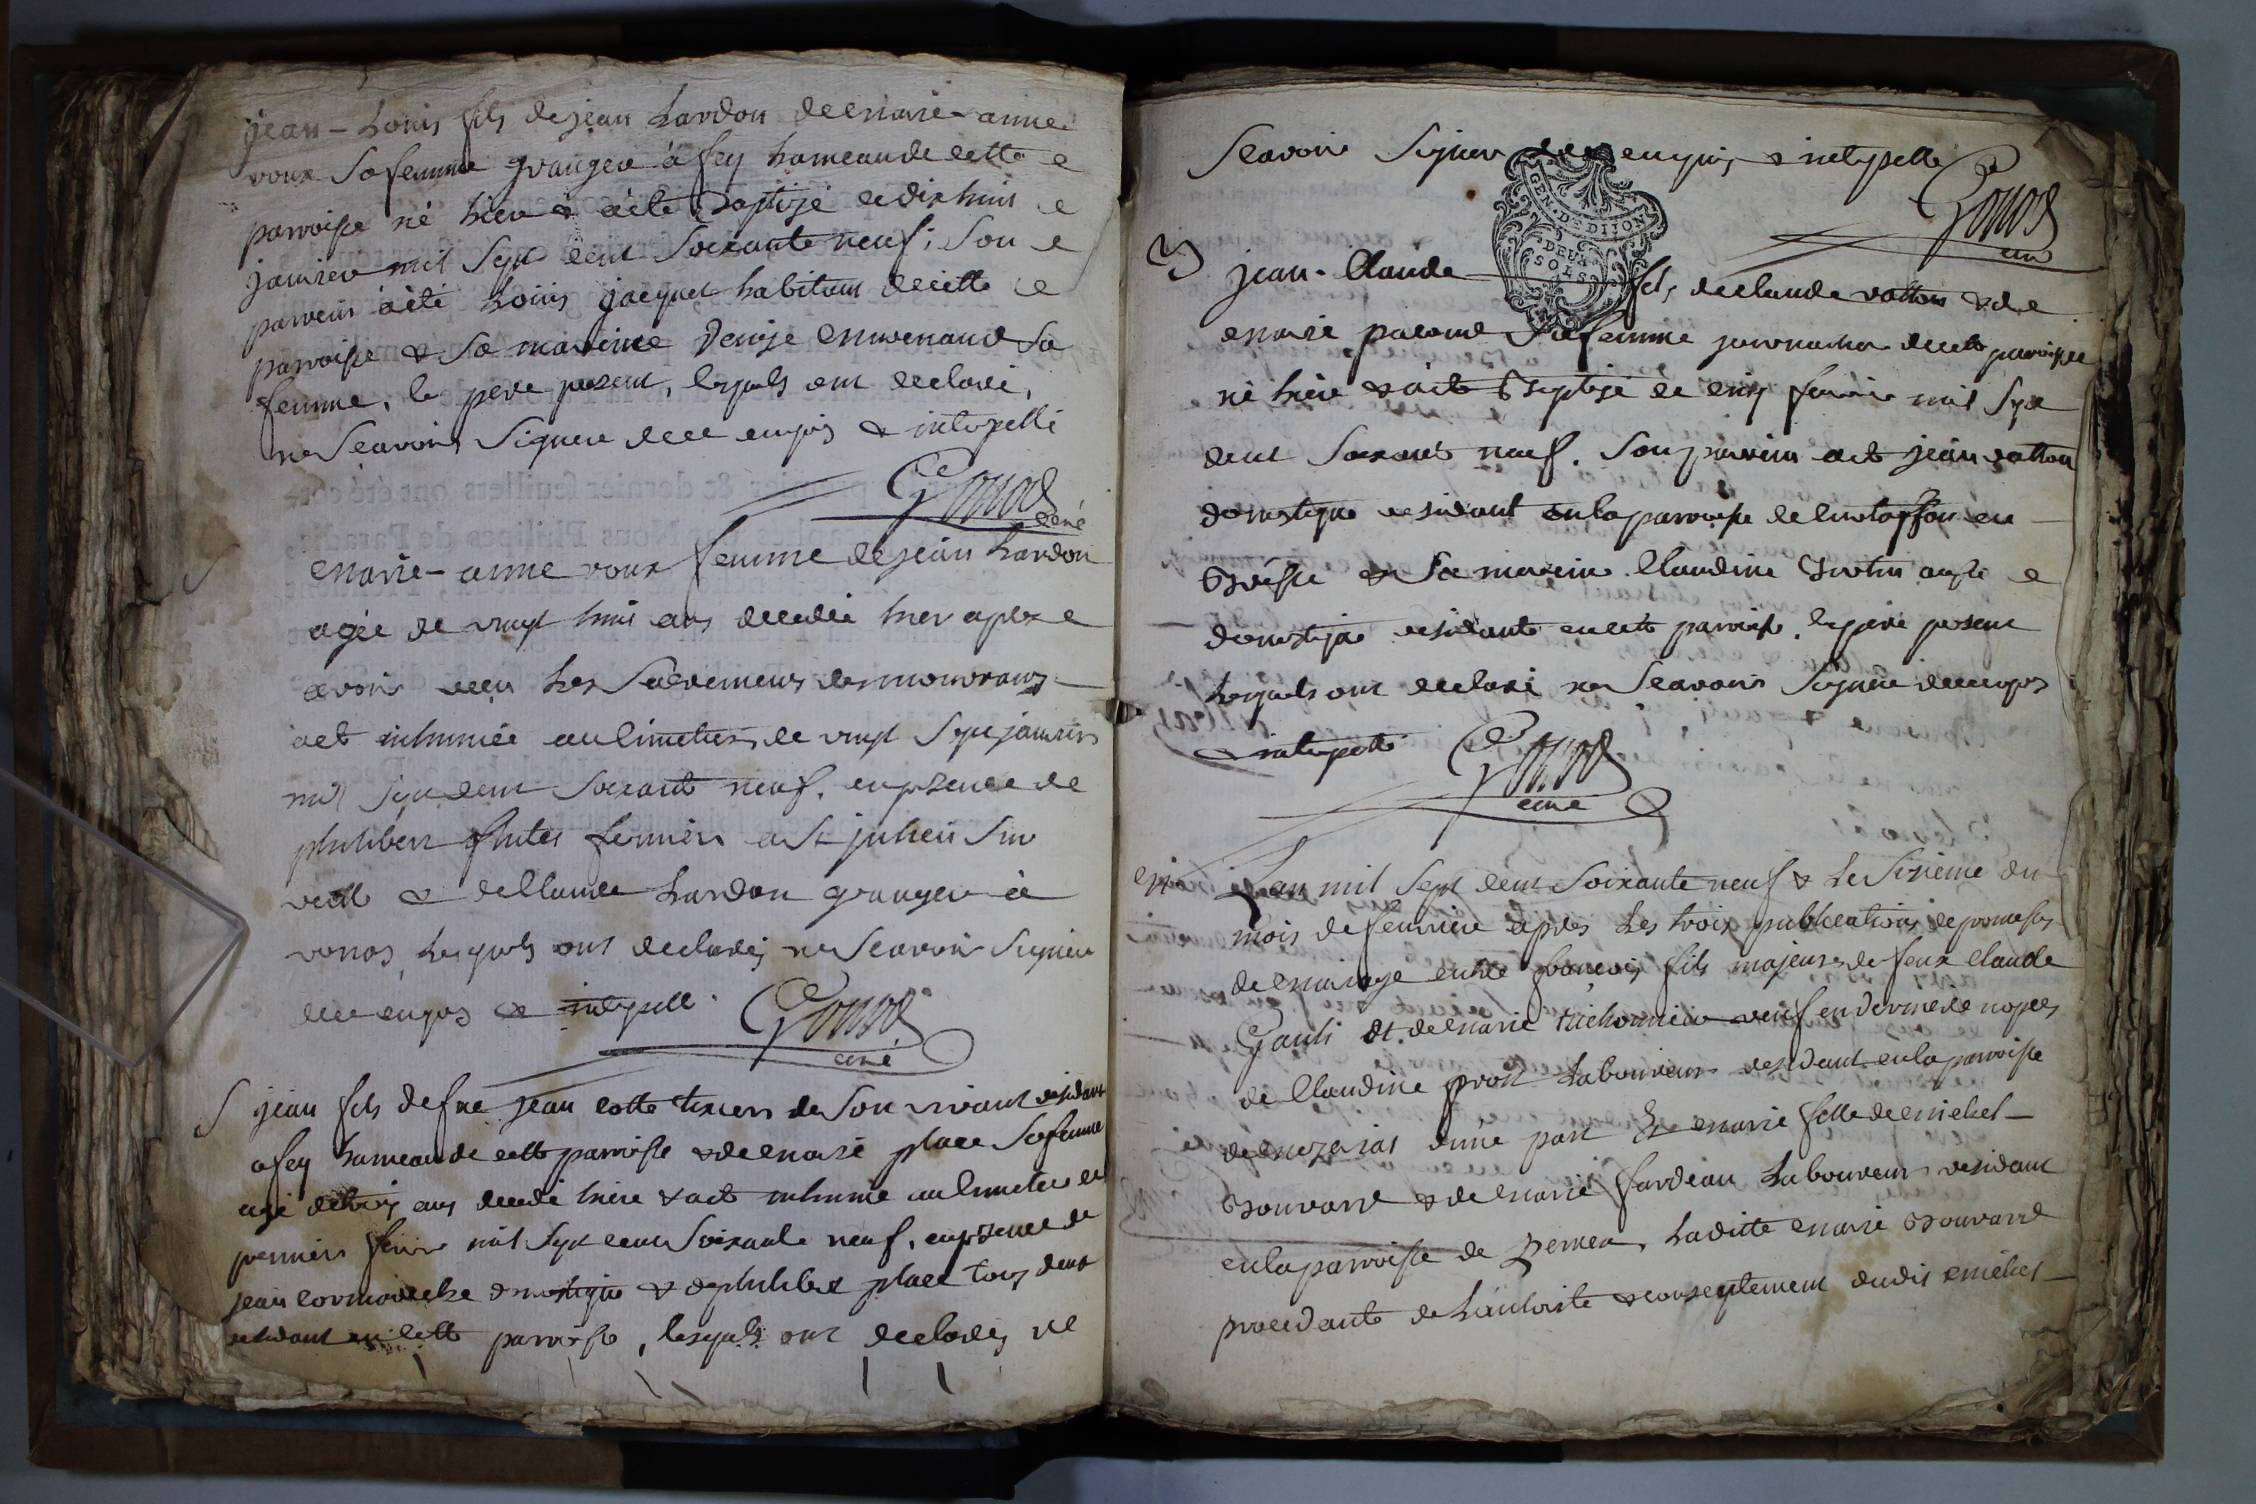 jean-Louis fils de jean Lardon de marie-anne
roux sa femme granger à fey hameau de cette
parroisse né hier & a été baptisé le dix huit
janvier mil sept cent soixante neuf, son
parrein a été Louis jacquet habitant de cette
parroisse & sa mareine Denise sa
femme, le pere present, lesquels ont declaré,
ne scavoir signer de ce enquis & interpellé
Gonod
curé
marie-anne roux femme de jean Lardon
agée de vingt huit ans decedée hier après
avoir reçu Les sacremens des mourrans
a été inhumée au cimetiere le vingt sept janvier
mil sept cent soixante neuf. en presence de
philibert fermier a St julien sur
& de Claude Lardon granger à
vonas, Lesquels ont declarés ne scavoir signer
de ce enquis & interpellé. Gonod
curé
jean fils de fue jean cotte tixier de son vivant residant
a fey hameau de cette parroisse & de marie place sa femme
agé de trois ans decedé hier & a été inhumé au cimetiere le
premier fevrier mil sept cent soixante neuf, en presence de
jean domestique & de philibert place tous deux
residant en cette parroisse, lesquels ont declarés ne
scavoir signer de ce enquis & interpellé
Gonod
curé
GEN. DE DIJON
DEUX
SOLS
jean-Claude fils de claude vatton & de
marie pacoud sa femme journalier de cette parroisse
né hier & a été baptisé le cinq fevrier mil sept
cent soixante neuf. son parrein a été jean vatton
domestique residant en la parroisse de en
Bresse & sa mareine Claudine
domestique residante en cette parroisse. le pere present
Lesquels ont declaré ne scavoir signer de ce enquis
& interpellé Gonod
curé
L'an mil sept cent soixante neuf & Le sixieme du
mois de fevrier après Les trois publications de promesses
de mariage entre françois fils majeur de feux claude
Gauti et de marie tuchonnier veuf en derniere nopces
de Claudine prost Laboureur residant en la parroisse
de mezerias d'une part Et marie fille de michel
Bouvard & de marie fardeau Laboureur residant
en la parroisse de perrex, Laditte marie Bouvard
procedante de L'authorité & consentement dudit michel